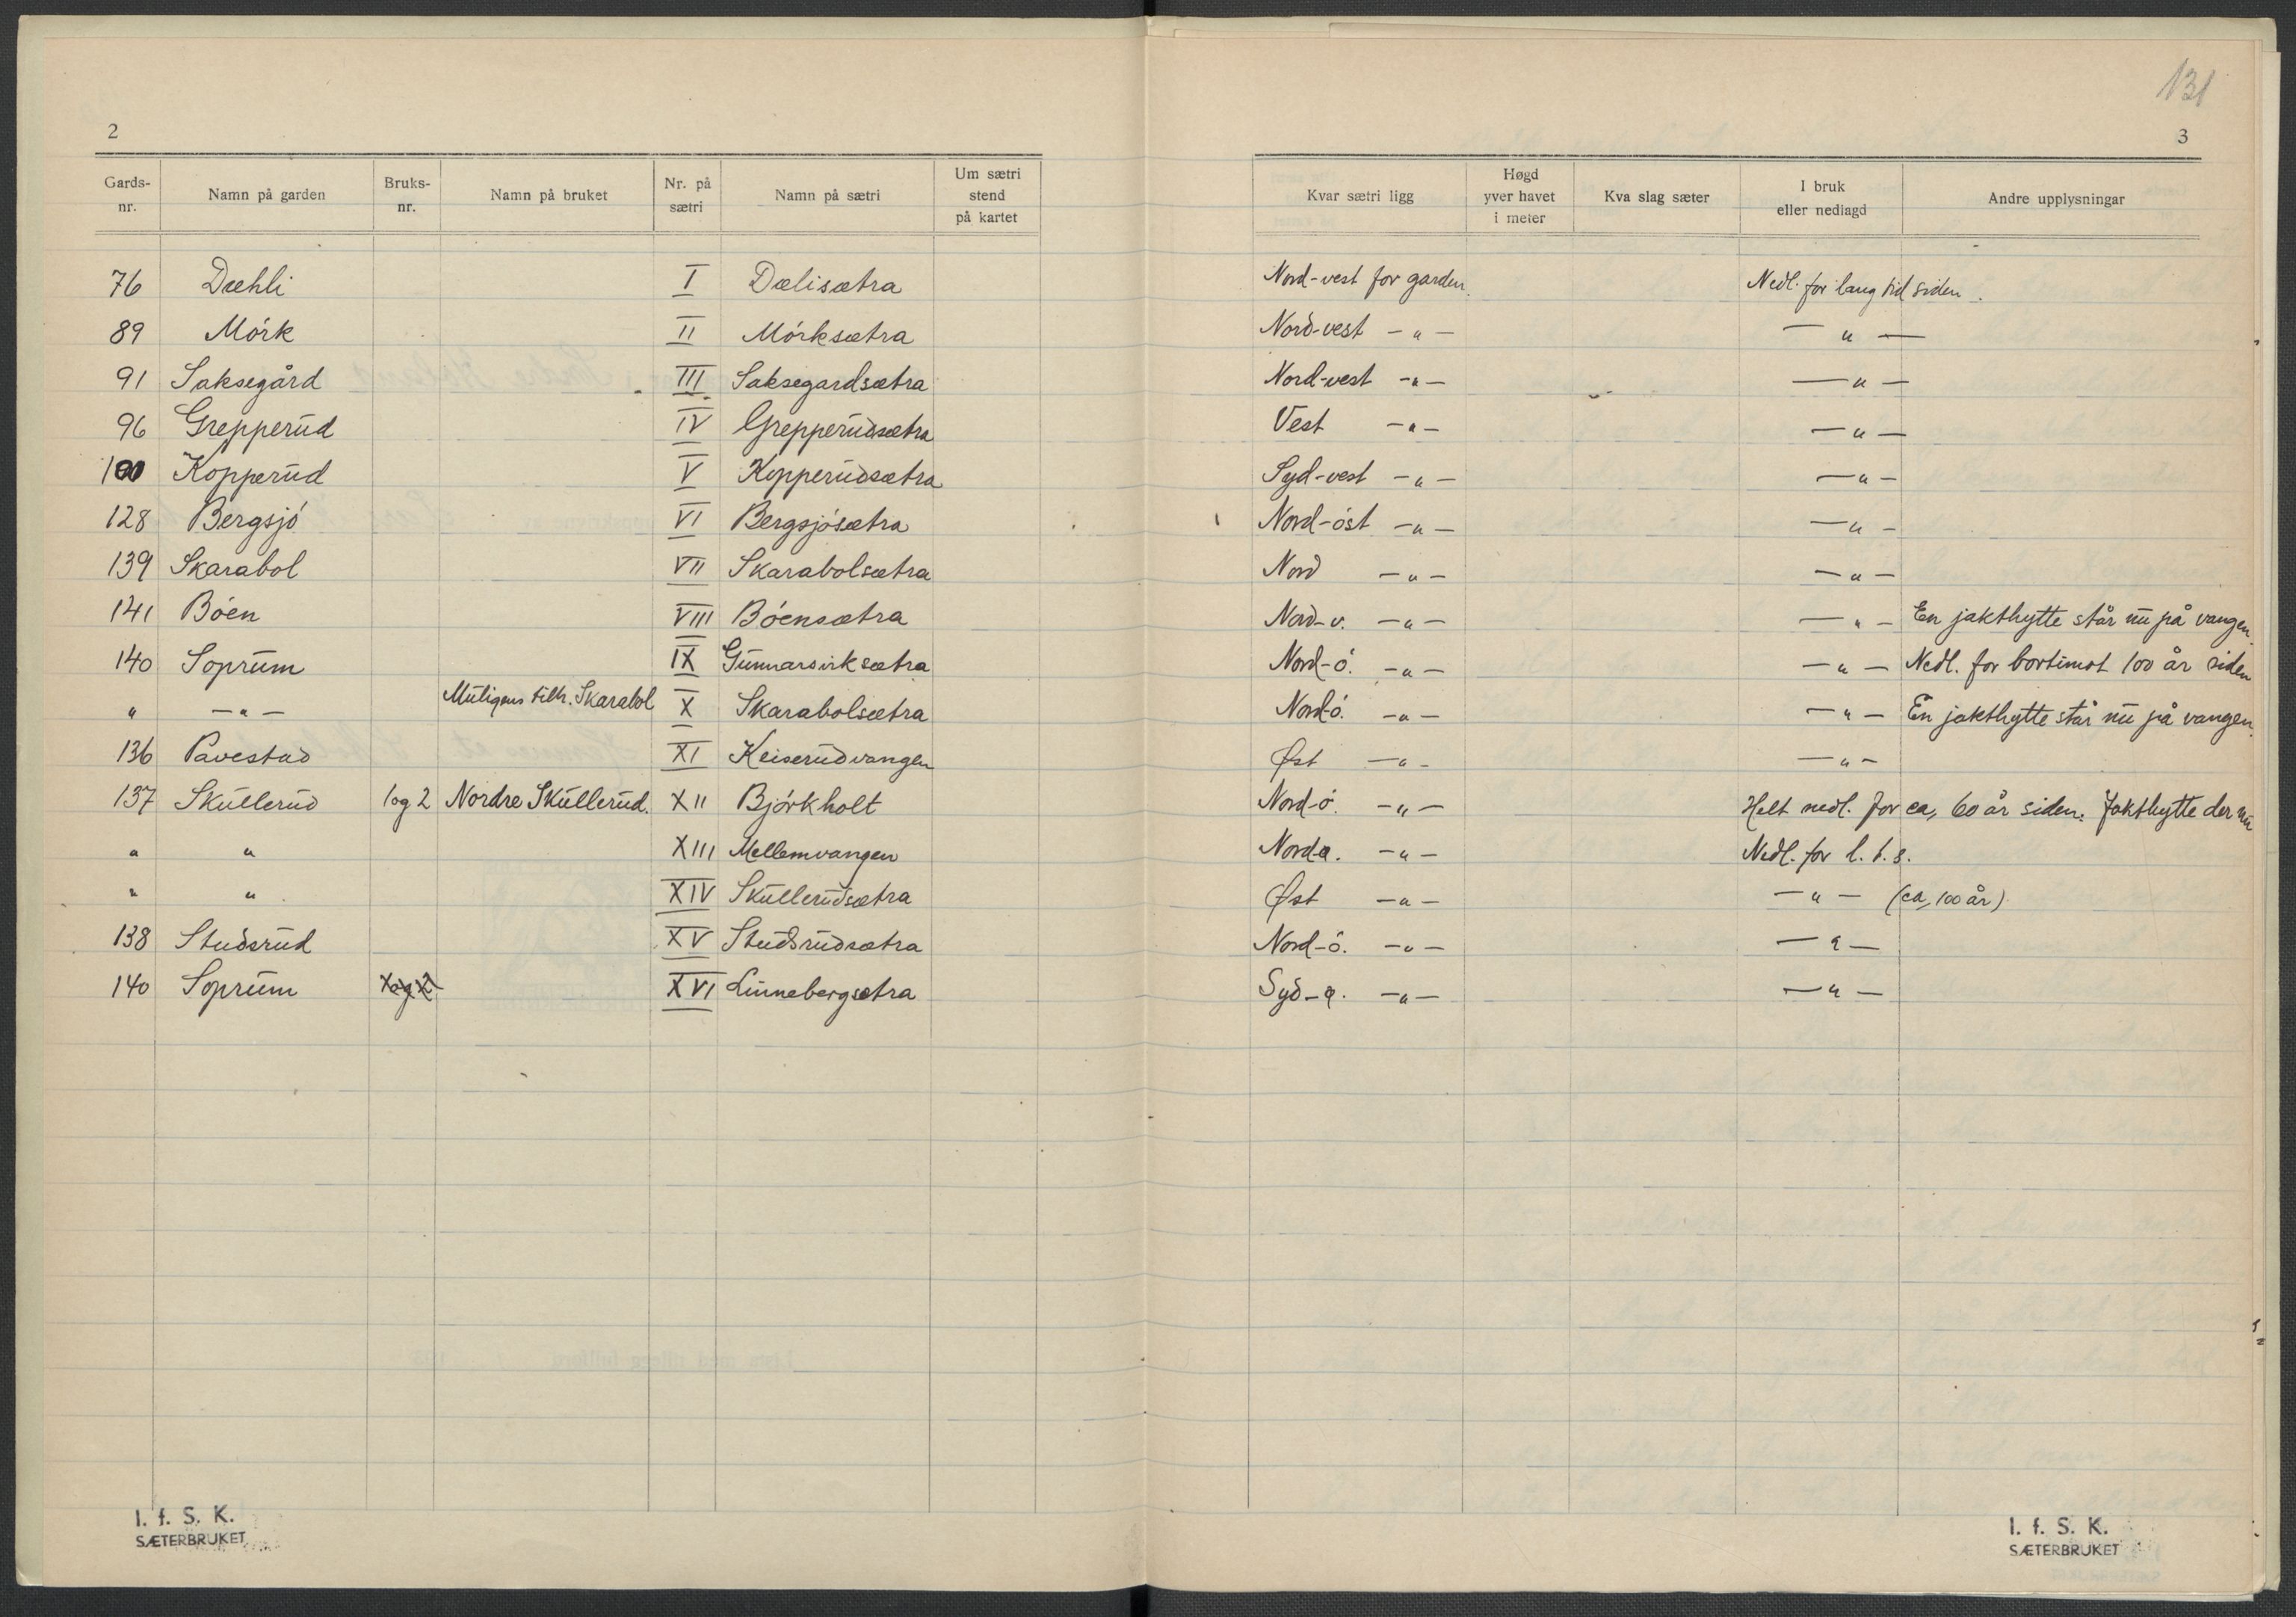 131
2
3
Gards-nr. Namn på garden Bruks-nr. Namn på bruket Nr. på sætri Namn på sætri Um sætri stend på kartet Kvar sætri ligg Høgd yver havet i meter Kva slag sæter I bruk eller nedlagd Andre upplysningar
76 Dæhli I Dælisætra Nord-vest for garden. Nedl. for lang tid siden.
89 Mörk II Mörksætra Nord-vest -"- -"-
91 Saksegård III Saksegardsætra Nord-vest -"- -"-
96 Grepperud IV Grepperudsætra Vest -"- -"-
100 Kopperud V Kopperudsætra Syd-vest -"- -"-
128 Bergsjö VI Bergsjösætra Nord-öst -"- -"-
139 Skarabol VII Skarabolsætra Nord -"- -"-
141 Böen VIII Böensætra Nord-v. -"- -"- En jakthytte står nu på vangen.
140 Soprum IX Gunnarsvirksætra Nord-ö. -"- -"- Nedl. for bortimot 100 år siden
" -"- Muligens tilh. Skarabol X Skarabolsætra Nord-ö. -"- -"- En jakthytte står nu på vangen.
136 Pavestad XI Keiserudvangen Øst -"- -"-
137 Skullerud 1 og 2 Nordre Skullerud. XII Björkholt Nord-ö. -"- Helt nedl. for ca, 60 år siden. Jakthytte der nu
" " XIII Mellemvangen Nord-ø. -"- Nedl. for l. t. s.
" " XIV Skullerudsætra Øst -"- -"- (ca, 100 år)
138 Studsrud XV Studsrudsætra Nord-ö. -"- -"-
140 Soprum 1 og 2 XVI Linnebergsætra Syd-ø. -"- -"-
I. f. S. K.
SÆTERBRUKET
I. f. S. K.
SÆTERBRUKET